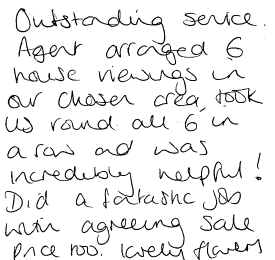 Outstanding service.
Agent arranged 6
house viewings in
our chosen area, took
us round all 6 in
a row and was
incredibly helpful!
Did a fantastic job
with agreeing sale
price too. lovely flowers